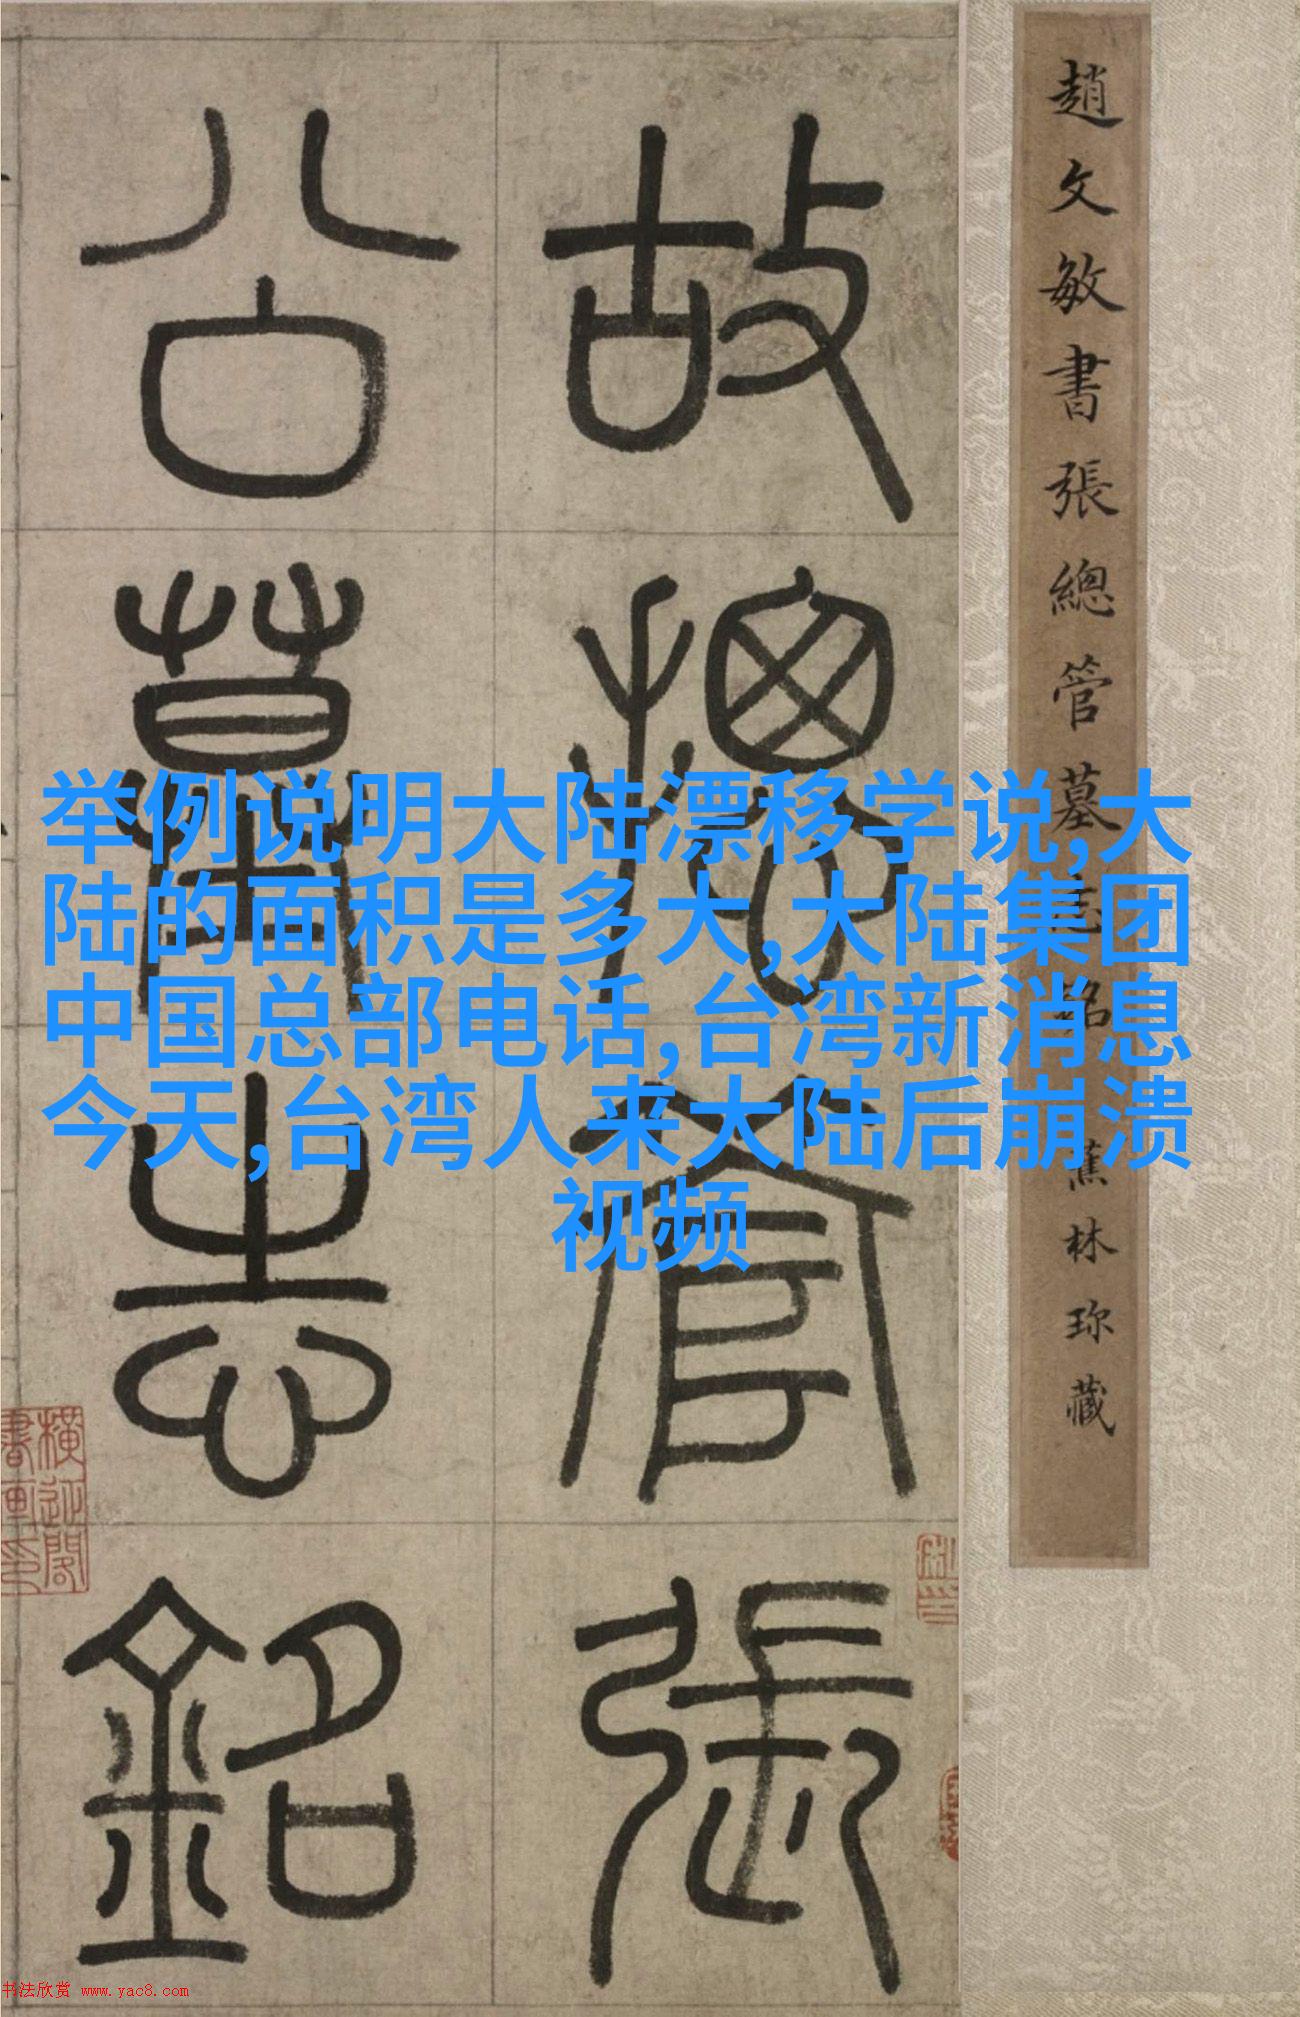 趙文敏書張總管墓志銘 蕉林珍藏
故總管張
公墓志銘
举例说明大陆漂移学说,大
陆的面积是多大,大陆集团
中国总部电话,台湾新消息
今天,台湾人来大陆后崩溃
视频
书法欣赏 www.yac8.com